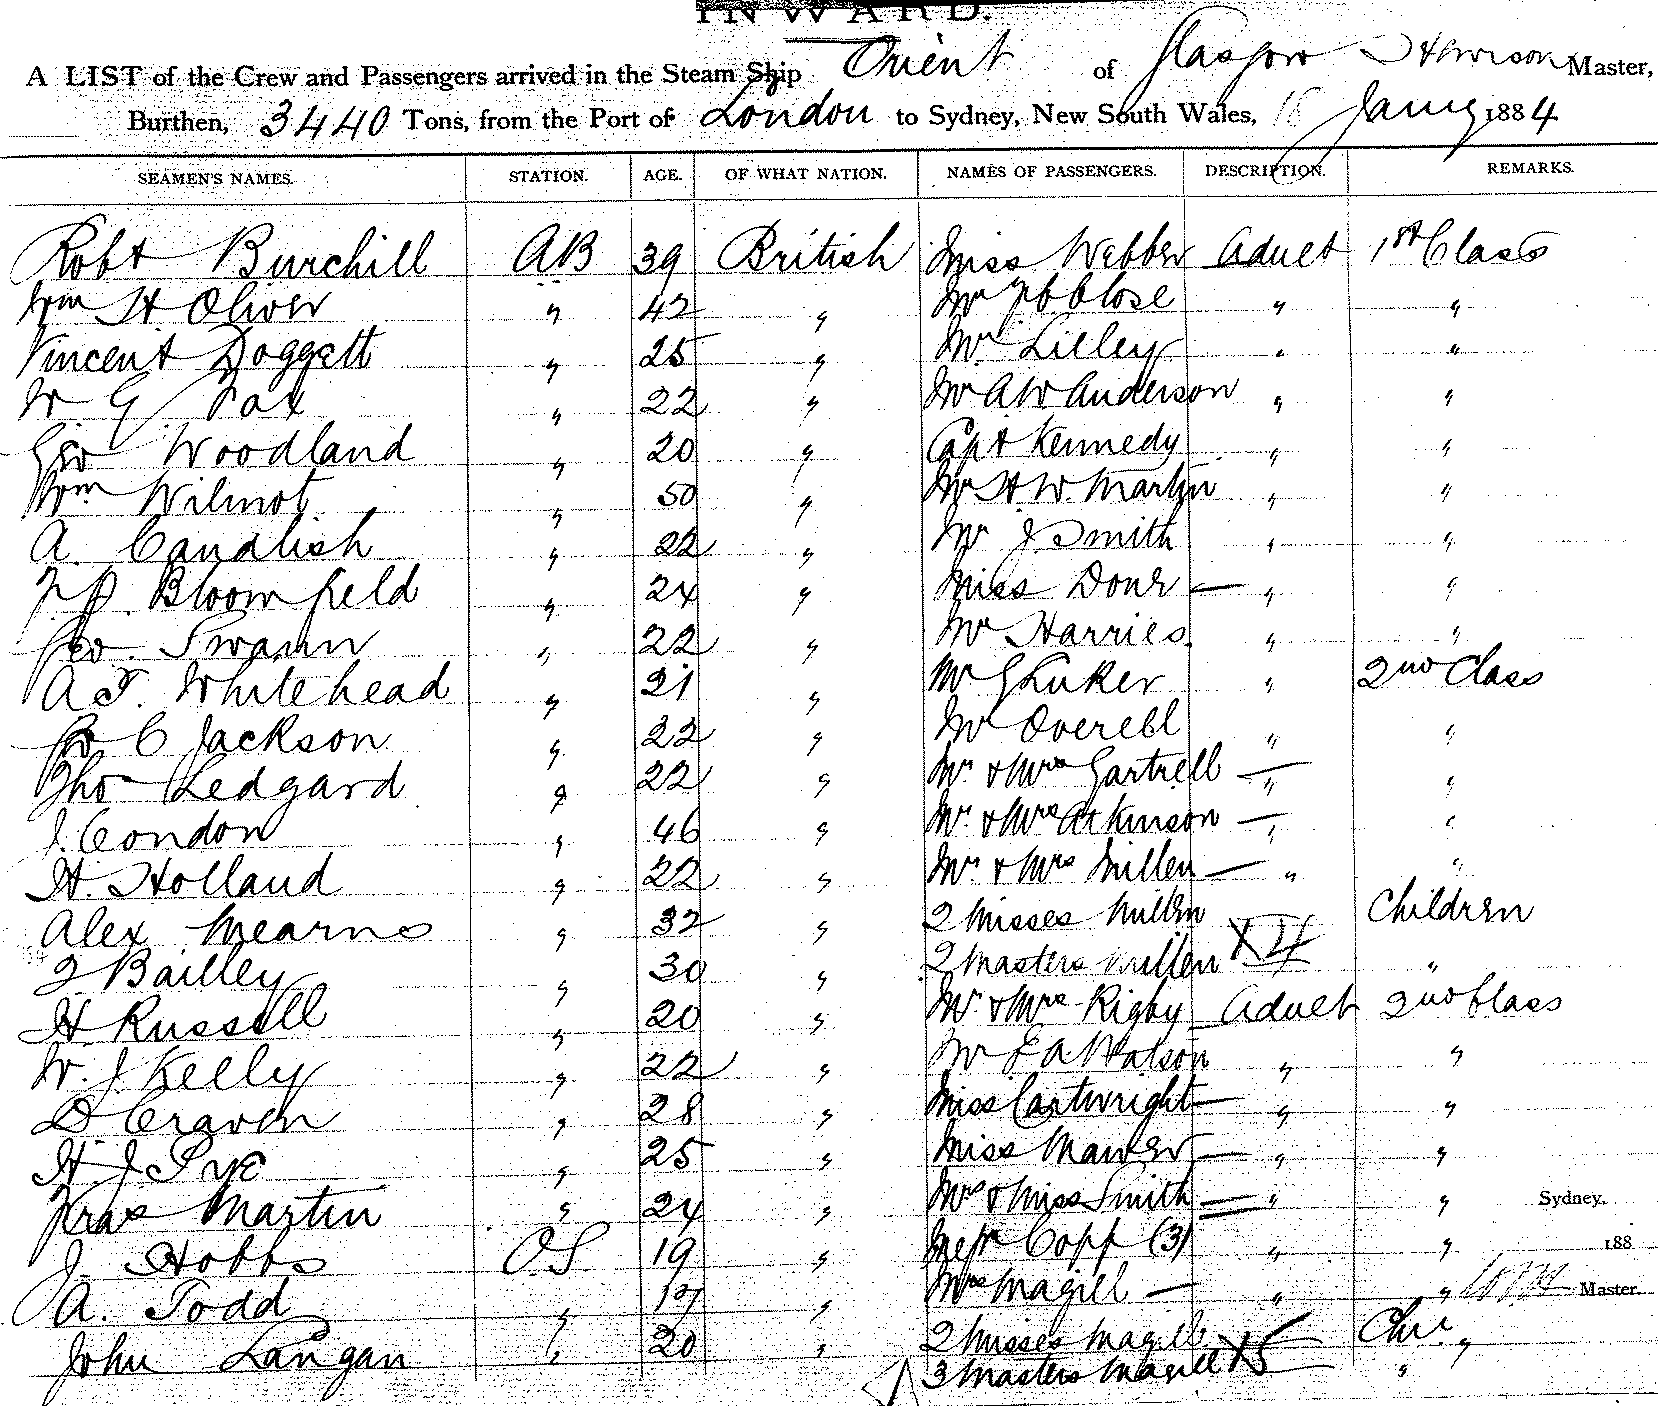 INWARD.
A LIST of the Crew and Passengers arrived in the Steam Ship Orient of Glasgow Master,
Burthen, 3440 Tons, from the Port of London to Sydney, New South Wales, 18 Jany 1884
SEAMEN'S NAMES. STATION. AGE. OF WHAT NATION. NAMES OF PASSENGERS. DESCRIPTION. REMARKS.
Robt Burchill AB 39 British Miss Webber Adult 1st Class
Wm H Oliver " 42 " Mr Close " "
Vincent Doggett " 25 " Mr Lilley " "
W G Fox " 22 " Mr A W Anderson " "
Geo Woodland " 20 " Capt Kennedy " "
Wm Wilmot " 50 " Mr H. W. Martin " "
A. Candlish " 22 " Mr J Smith " "
Bloomfield " 24 " Miss Done — " "
Geo. Swann " 22 " Mr Harries " "
A. T. Whitehead " 21 " Mr G Luker " 2nd Class
C Jackson " 22 " Mr Overell " "
Tho Ledgard " 22 " Mr & Mrs Gartrell — " "
J. Condon " 46 " Mr & Mrs Atkinson — " "
H. Holland " 22 " Mr & Mrs Millen — " "
Alex Mearns " 32 " 2 Misses Millen Children
J Bailley " 30 " 2 Masters Millen X 4 "
H Russell " 20 " Mr & Mrs Rigby Adult 2nd Class
W. J Kelly " 22 " Mr E A Watson " "
D Craven " 28 " Miss Cartwright — " "
H. J Pye " 25 " Miss Mawer — " "
Fras Martin " 24 " Mrs & Miss Smith — " " Sydney.
J. Hobbs OS 19 " Messrs Copp (3) " " 188
A. Todd " 17 " Mrs Magill — " " Master.
John Langan " 20 " 2 Misses Magill X5 Chil "
3 Masters Magill "